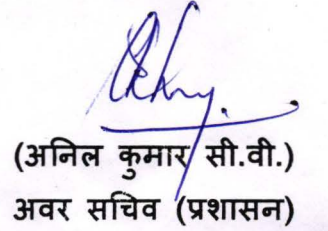 (अनिल कुमार सी.वी.)
अवर सचिव (प्रशासन)